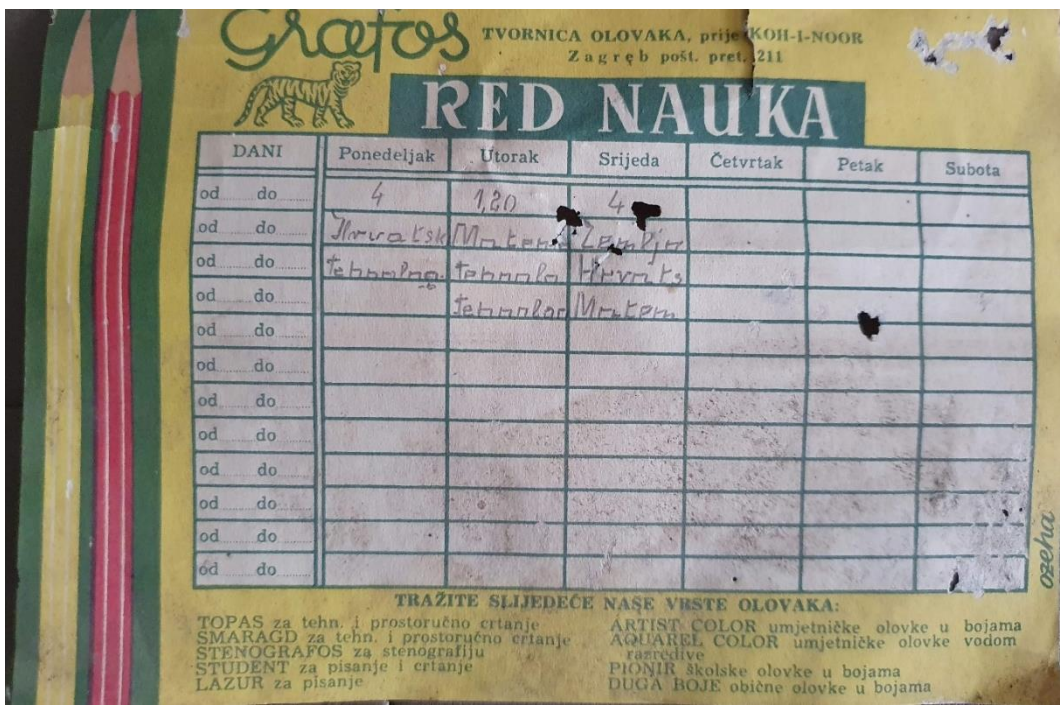 Grafos
TVORNICA OLOVAKA, prije KOH-I-NOOR
Zagreb pošt. pret. 211
RED NAUKA
DANI Ponedeljak Utorak Srijeda Četvrtak Petak Subota
od do 4 1,20 4
od do Hrvatsk Matem Zemljo
od do tehnolog. tehnolo Hrvats
od do tehnolog Matem
od do
od do
od do
od do
od do
od do
od do
od do
ozeha
TRAŽITE SLIJEDEĆE NAŠE VRSTE OLOVAKA:
TOPAS za tehn. i prostoručno crtanje
SMARAGD za tehn. i prostoručno crtanje
STENOGRAFOS za stenografiju
STUDENT za pisanje i crtanje
LAZUR za pisanje
ARTIST COLOR umjetničke olovke u bojama
AQUAREL COLOR umjetničke olovke vodom
razredive
PIONIR školske olovke u bojama
DUGA BOJE obične olovke u bojama